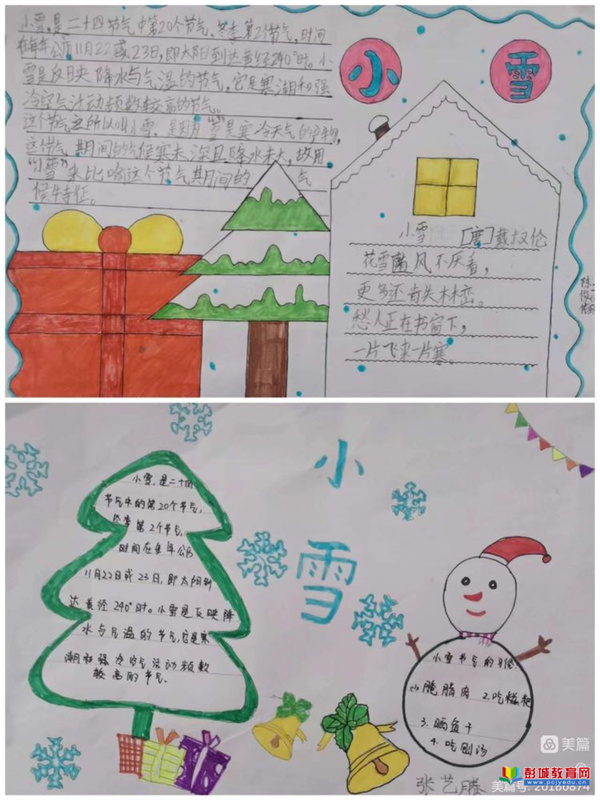 小雪,是二十四节气中第20个节气,冬季第2个节气,时间
在每年公历11月22或23日,即太阳到达黄经240°时。小
雪是反映降水与气温的节气,它是寒潮和强
冷空气活动频数较高的节气。
这个节气之所以叫小雪,是因为"雪"是寒冷天气的产物,
这个节气期间的气候寒未深且降水未大,故用
"小雪"来比喻这个节气期间的气
候特征。
小雪
小雪 [唐]戴叔伦
花雪随风不厌看,
更多还肯失林峦。
愁人正在书窗下,
一片飞来一片寒。
小雪
小雪,是二十四
节气中的第20个节气,
冬季第2个节气,
时间在每年公历
11月22日或23日,即太阳到
达黄经240°时。小雪是反映降
水与气温的节气,它是寒
潮和强冷空气活动频数
较高的节气。
小雪节气的习俗
1.腌腊肉 2.吃糍粑
3.晒鱼干
4.吃刨汤
张艺滕
美篇
美篇号:20180874
彭城教育网
www.pcjyedu.cn